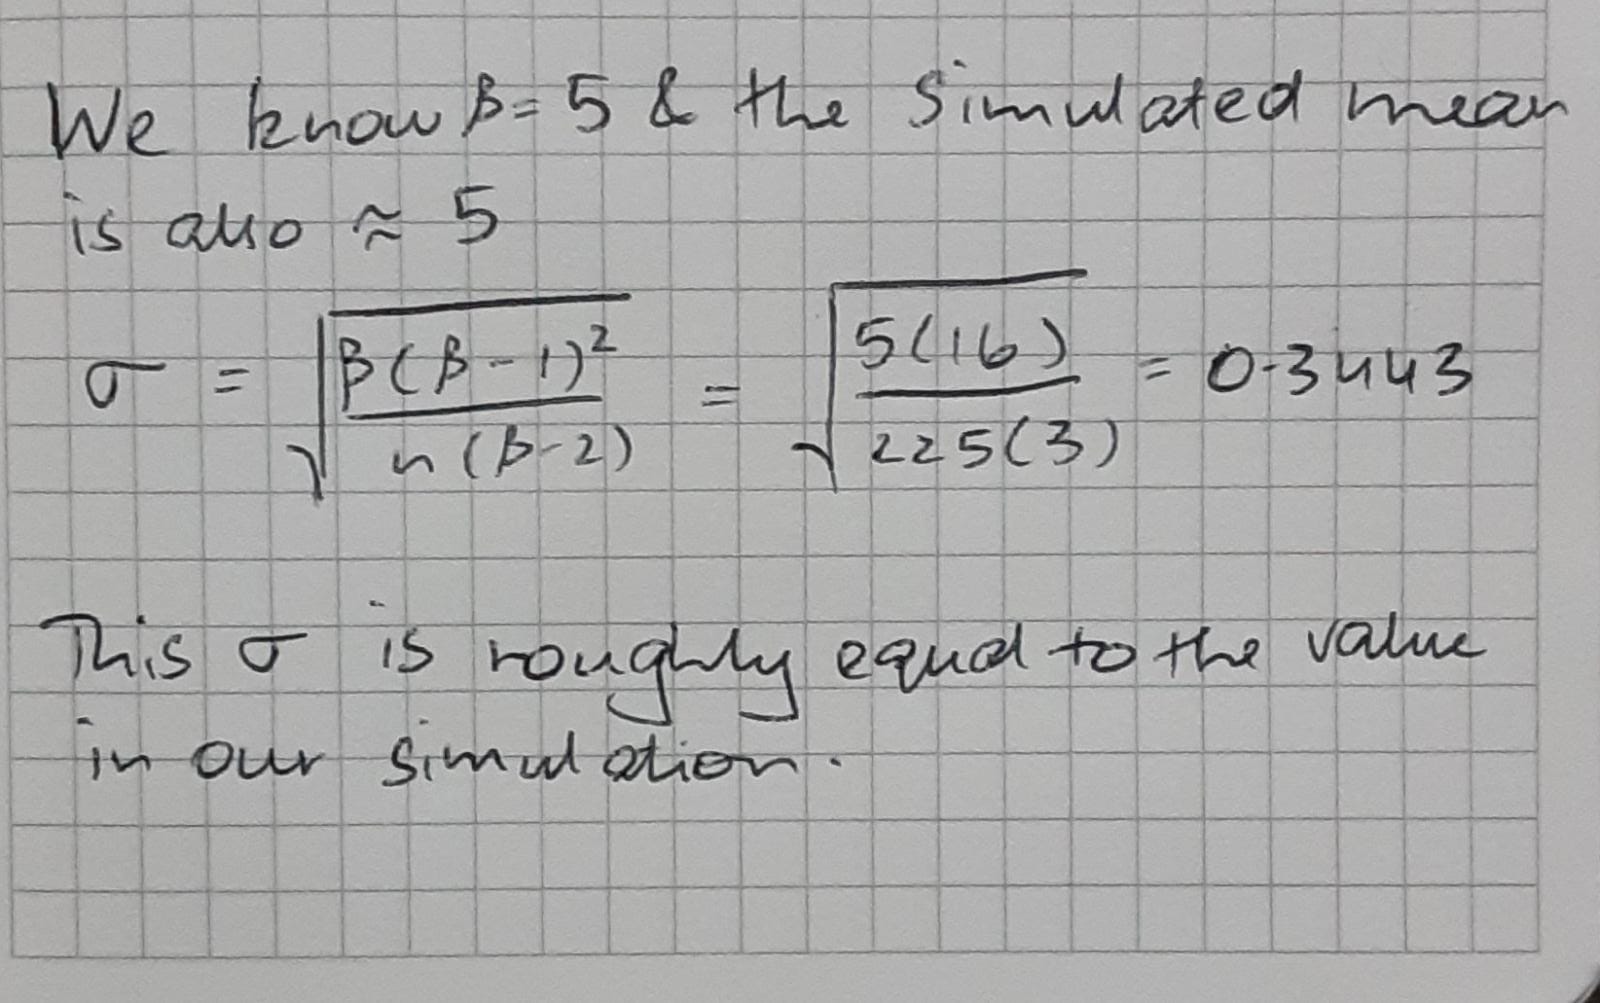 We know β = 5 & the simulated mean
is also ≈ 5
σ = √(β(β-1)² / n(β-2)) = √(5(16) / 225(3)) = 0.3443
This σ is roughly equal to the value
in our simulation.